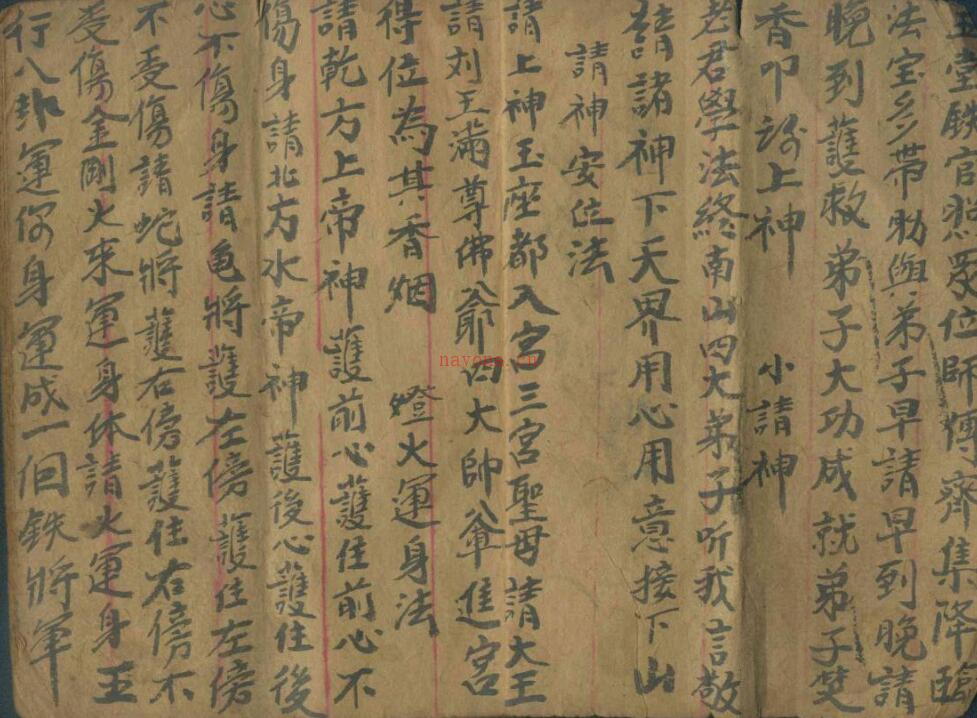 玉堂饒官悲眾位師傅齊集降臨
法宝多帶助與弟子早請早到晚請
晚到護救弟子大功成就弟子焚
香叩謝上神 小請神
老君學法終南山四大弟子听我言敬
請諸神下天界用心用意接下山
請神安位法
請上神玉座都入宮三宮聖母請大王
請刘王滿尊佛爺四大帥爺進宮
得位為其香烟 燈火運身法
請乾方上帝神護前心護住前心不
傷身請北方水帝神護後心護住後
心不傷身請龟將護左傍護住左傍
不受傷請蛇將護右傍護住右傍不
受傷金剛火來運身体請火運身五
行八卦運你身運成一個鉄將軍
nayona.cn